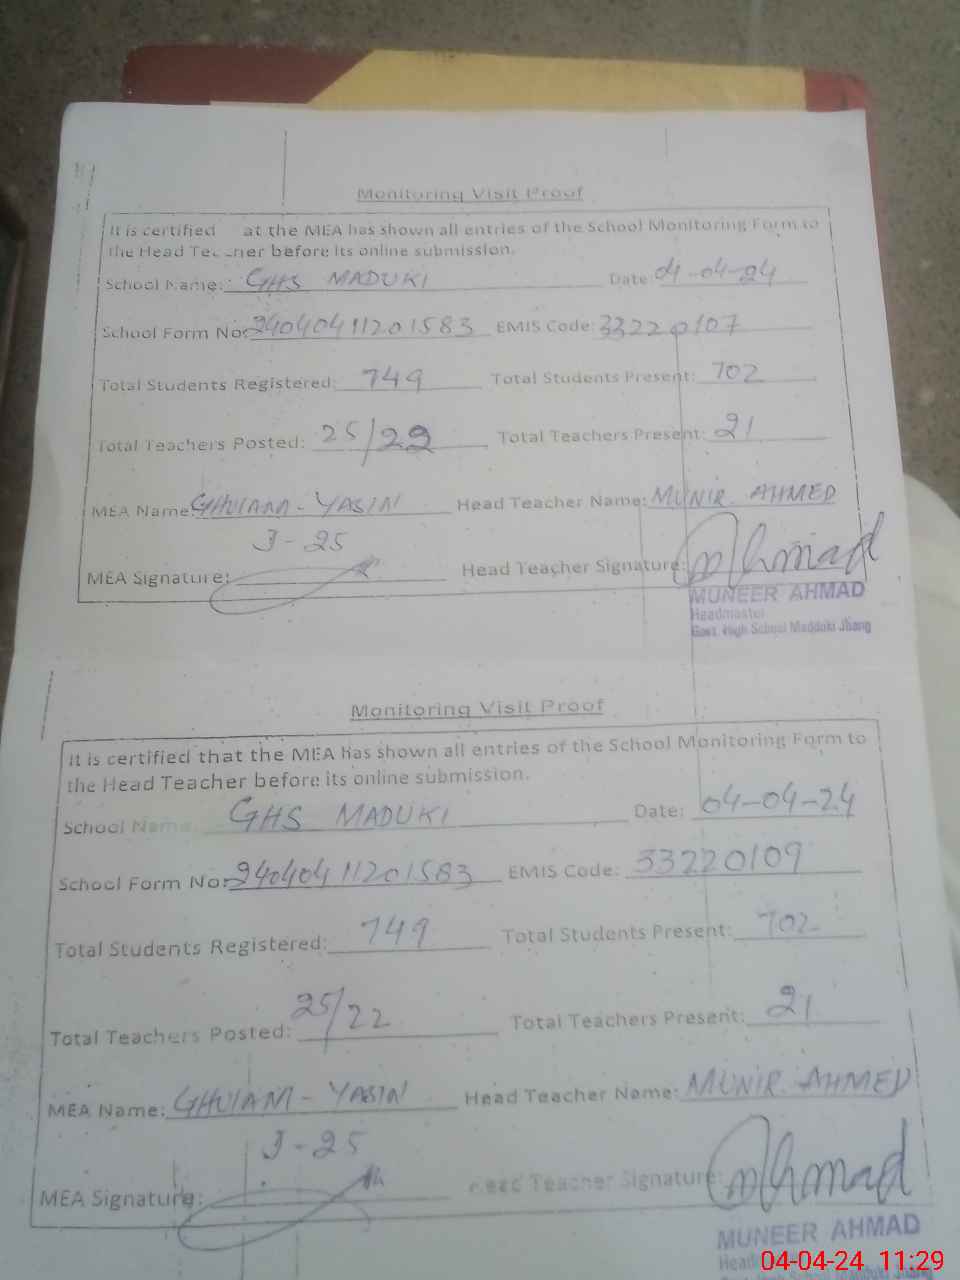 Monitoring Visit Proof
It is certified at the MEA has shown all entries of the School Monitoring Form to
the Head Teacher before its online submission.
School Name: GHS MADUKI Date: 04-04-24
School Form No: 24040411201583 EMIS Code: 33220107
Total Students Registered: 749 Total Students Present: 702
Total Teachers Posted: 25/22 Total Teachers Present: 21
MEA Name: GHULAM-YASIN Head Teacher Name: MUNIR AHMED
J-25
MEA Signature: Head Teacher Signature: Ahmad
MUNEER AHMAD
Headmaster
Govt. High School Madduki Jhang
Monitoring Visit Proof
It is certified that the MEA has shown all entries of the School Monitoring Form to
the Head Teacher before its online submission.
School Name: GHS MADUKI Date: 04-04-24
School Form No: 24040411201583 EMIS Code: 33220109
Total Students Registered: 749 Total Students Present: 702
Total Teachers Posted: 25/22 Total Teachers Present: 21
MEA Name: GHULAM-YASIN Head Teacher Name: MUNIR AHMED
J-25
MEA Signature: Head Teacher Signature: Ahmad
MUNEER AHMAD
04-04-24 11:29